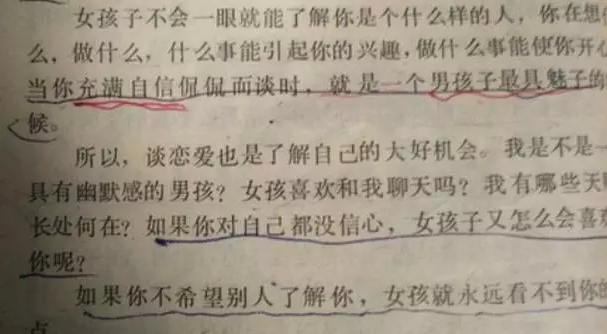 女孩子不会一眼就能了解你是个什么样的人，你在想
么，做什么，什么事能引起你的兴趣，做什么事能使你开心
当你充满自信侃侃而谈时，就是一个男孩子最具魅子的
候。
所以，谈恋爱也是了解自己的大好机会。我是不是一
具有幽默感的男孩？女孩喜欢和我聊天吗？我有哪些天
长处何在？如果你对自己都没信心，女孩子又怎么会喜
你呢？
如果你不希望别人了解你，女孩就永远看不到你的
点